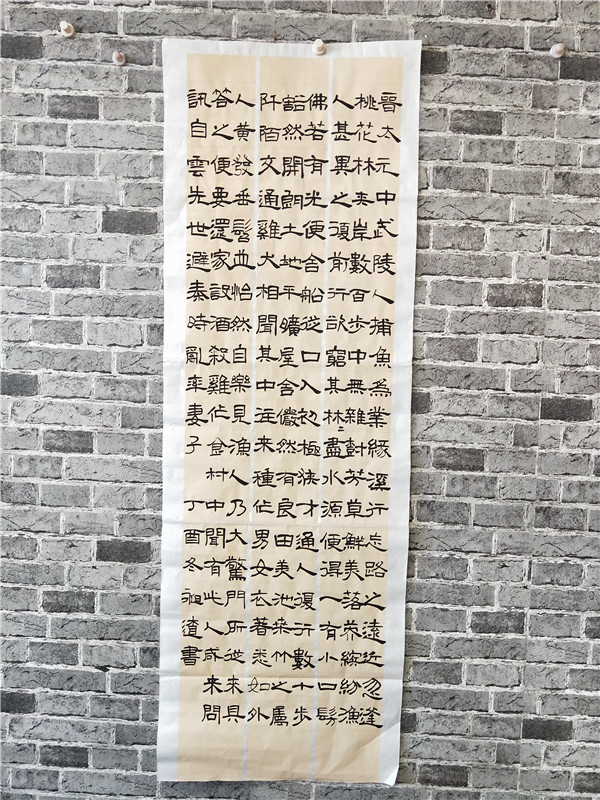 晉太元中武陵人捕魚為業緣溪行忘路之遠近忽逢
桃花林夾岸數百步中無雜樹芳草鮮美落英繽紛漁
人甚異之復前行欲窮其林〻盡水源便得一有小口髣
佛若有光便舍船從口入初極狹才通人復行數十步
豁然開朗土地平曠屋舍儼然有良田美池桑竹之屬
阡陌交通雞犬相聞其中往來種作男女衣著悉如外
人黃發垂髫並怡然自樂見漁人乃大驚門所從來具
答之便要還家設酒殺雞作食村中聞有此人咸來問
訊自雲先世避秦時亂率妻子
丁酉冬書